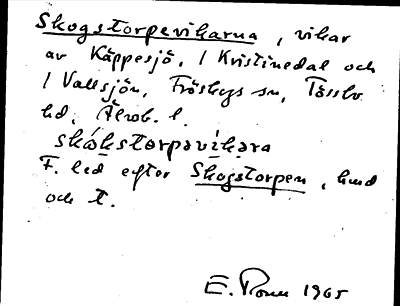 Skogstorpevikarna, vikar
av Käppesjö, 1 Kristinedal och
1 Vallsjön, Fröskogs sn, Tössbo
hd, Älvsb. l.
skókstorpavíkara
F. led efter Skogstorpen, hmd
och t.
E. Rosell 1965